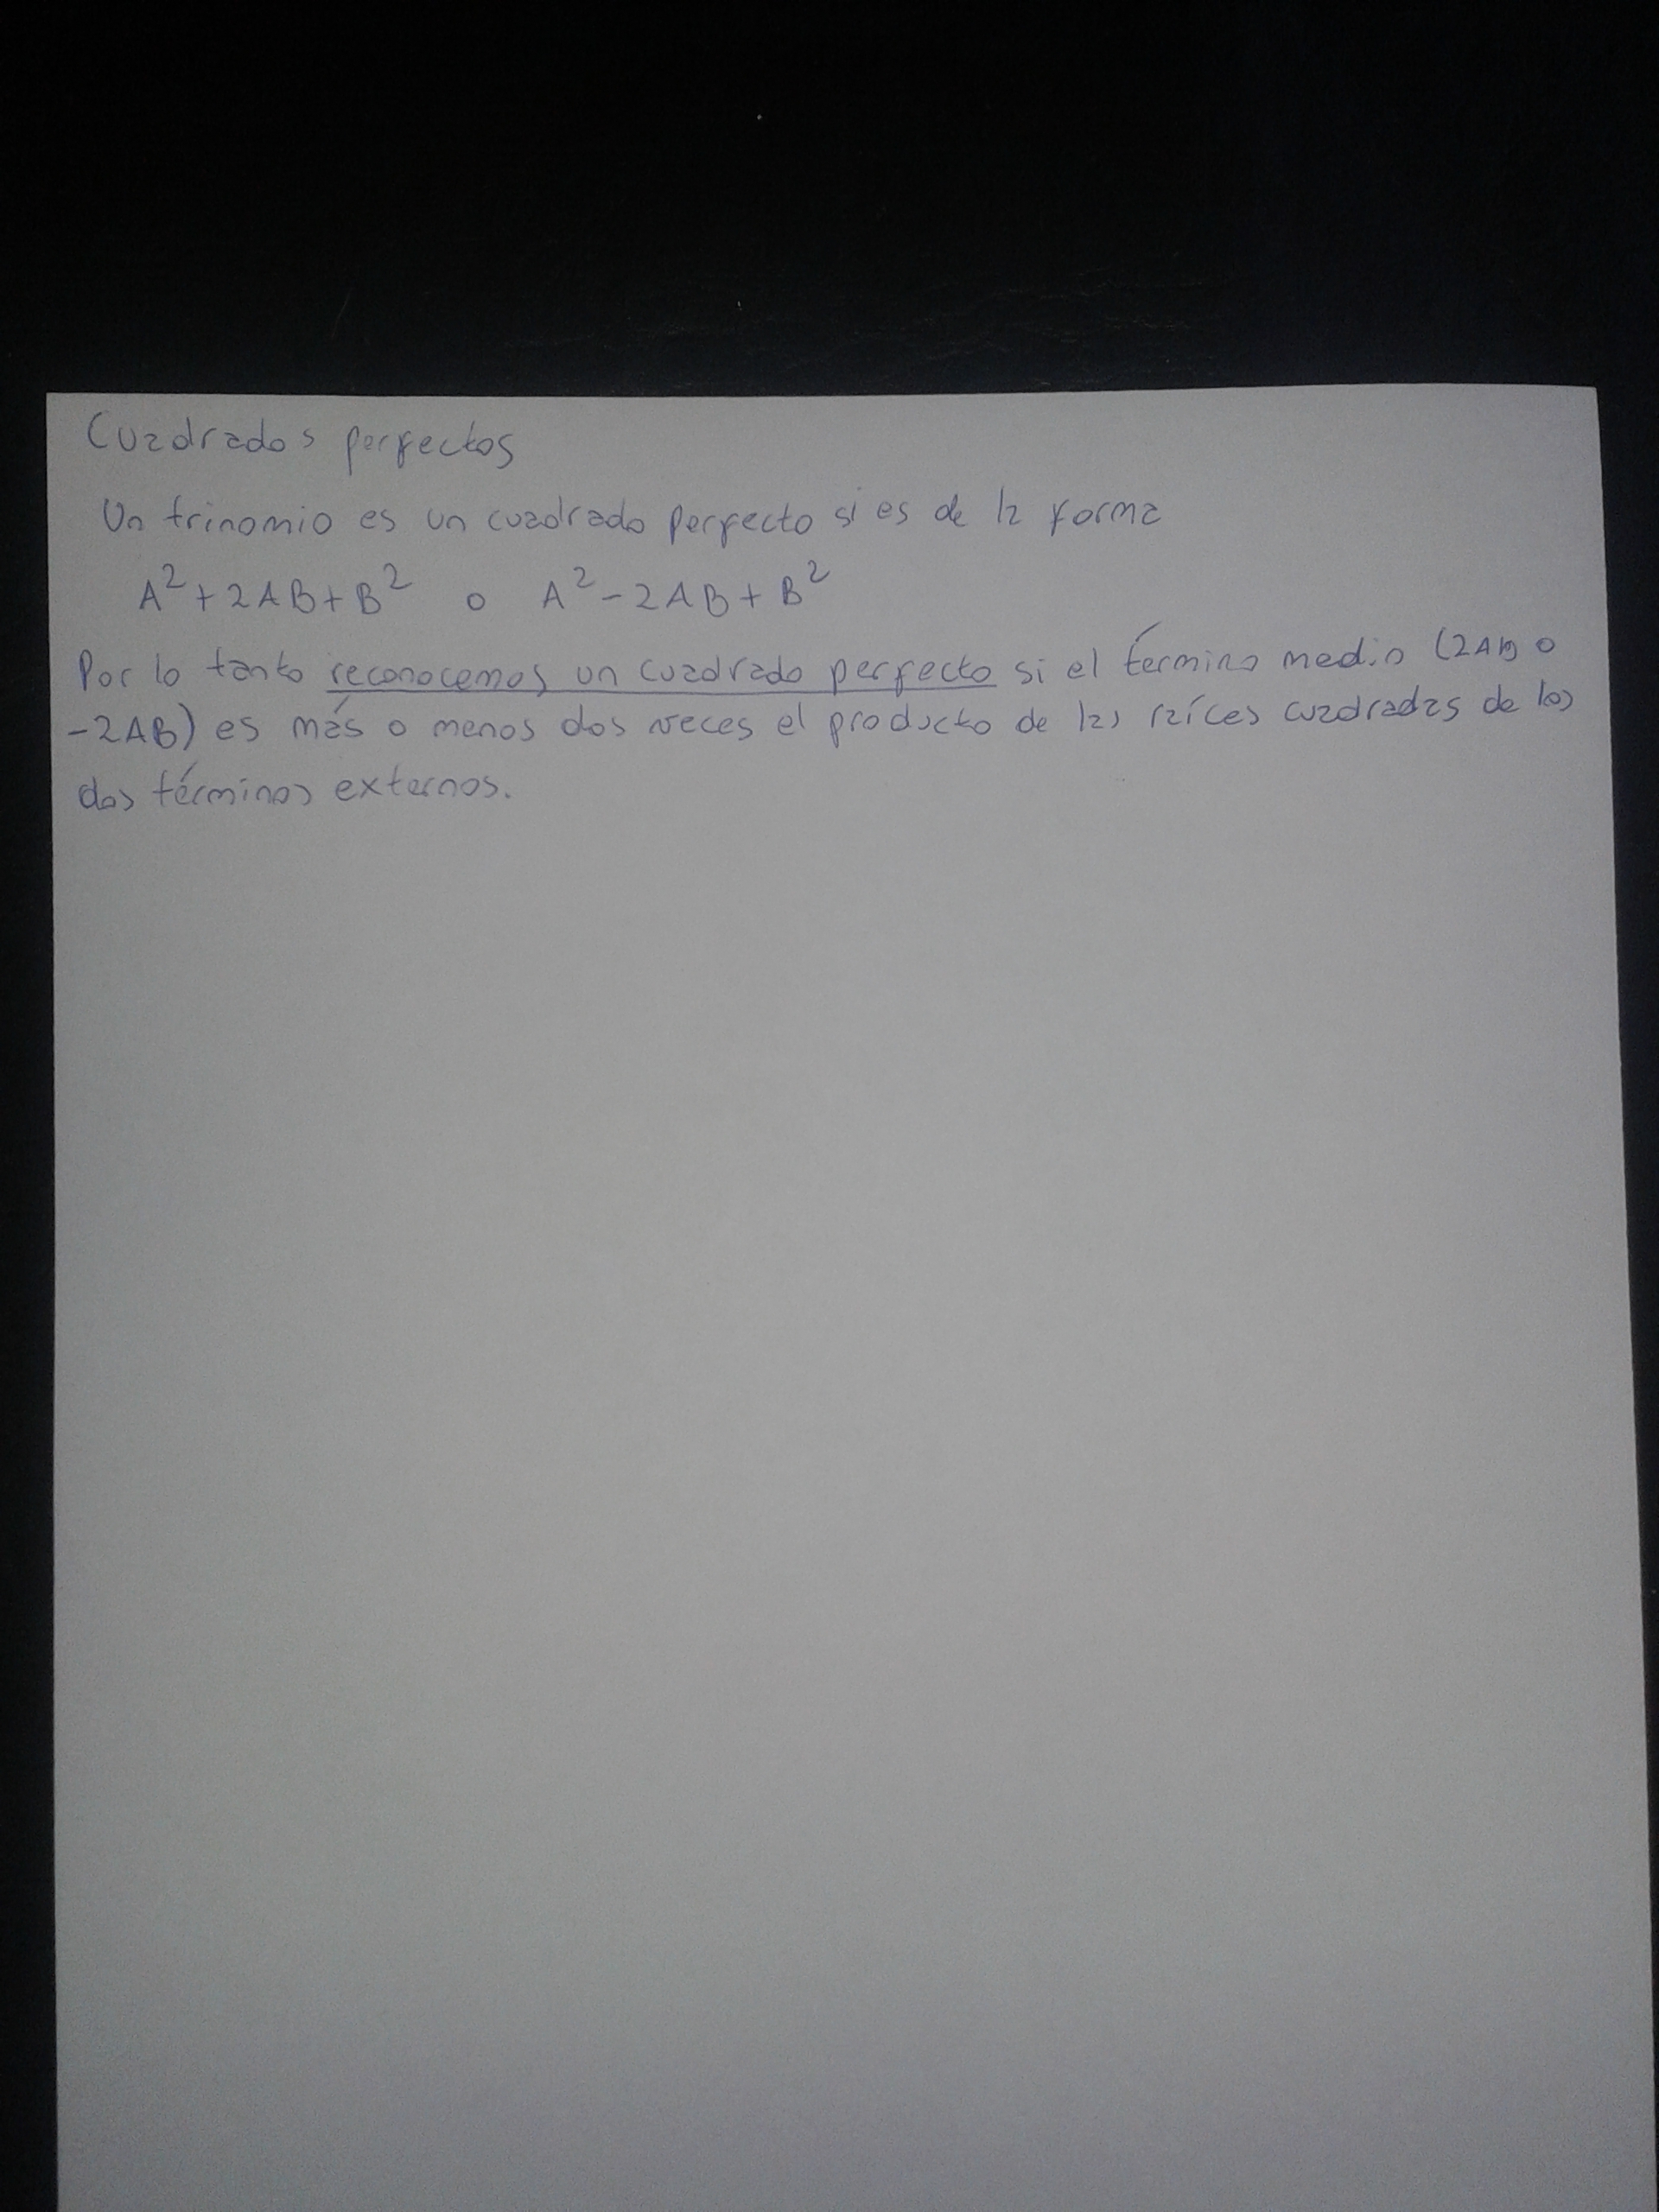 Cuadrados perfectos
Un trinomio es un cuadrado perfecto si es de la forma
A² + 2AB + B² o A² - 2AB + B²
Por lo tanto reconocemos un cuadrado perfecto si el término medio (2AB o
-2AB) es más o menos dos veces el producto de las raíces cuadradas de los
dos términos externos.